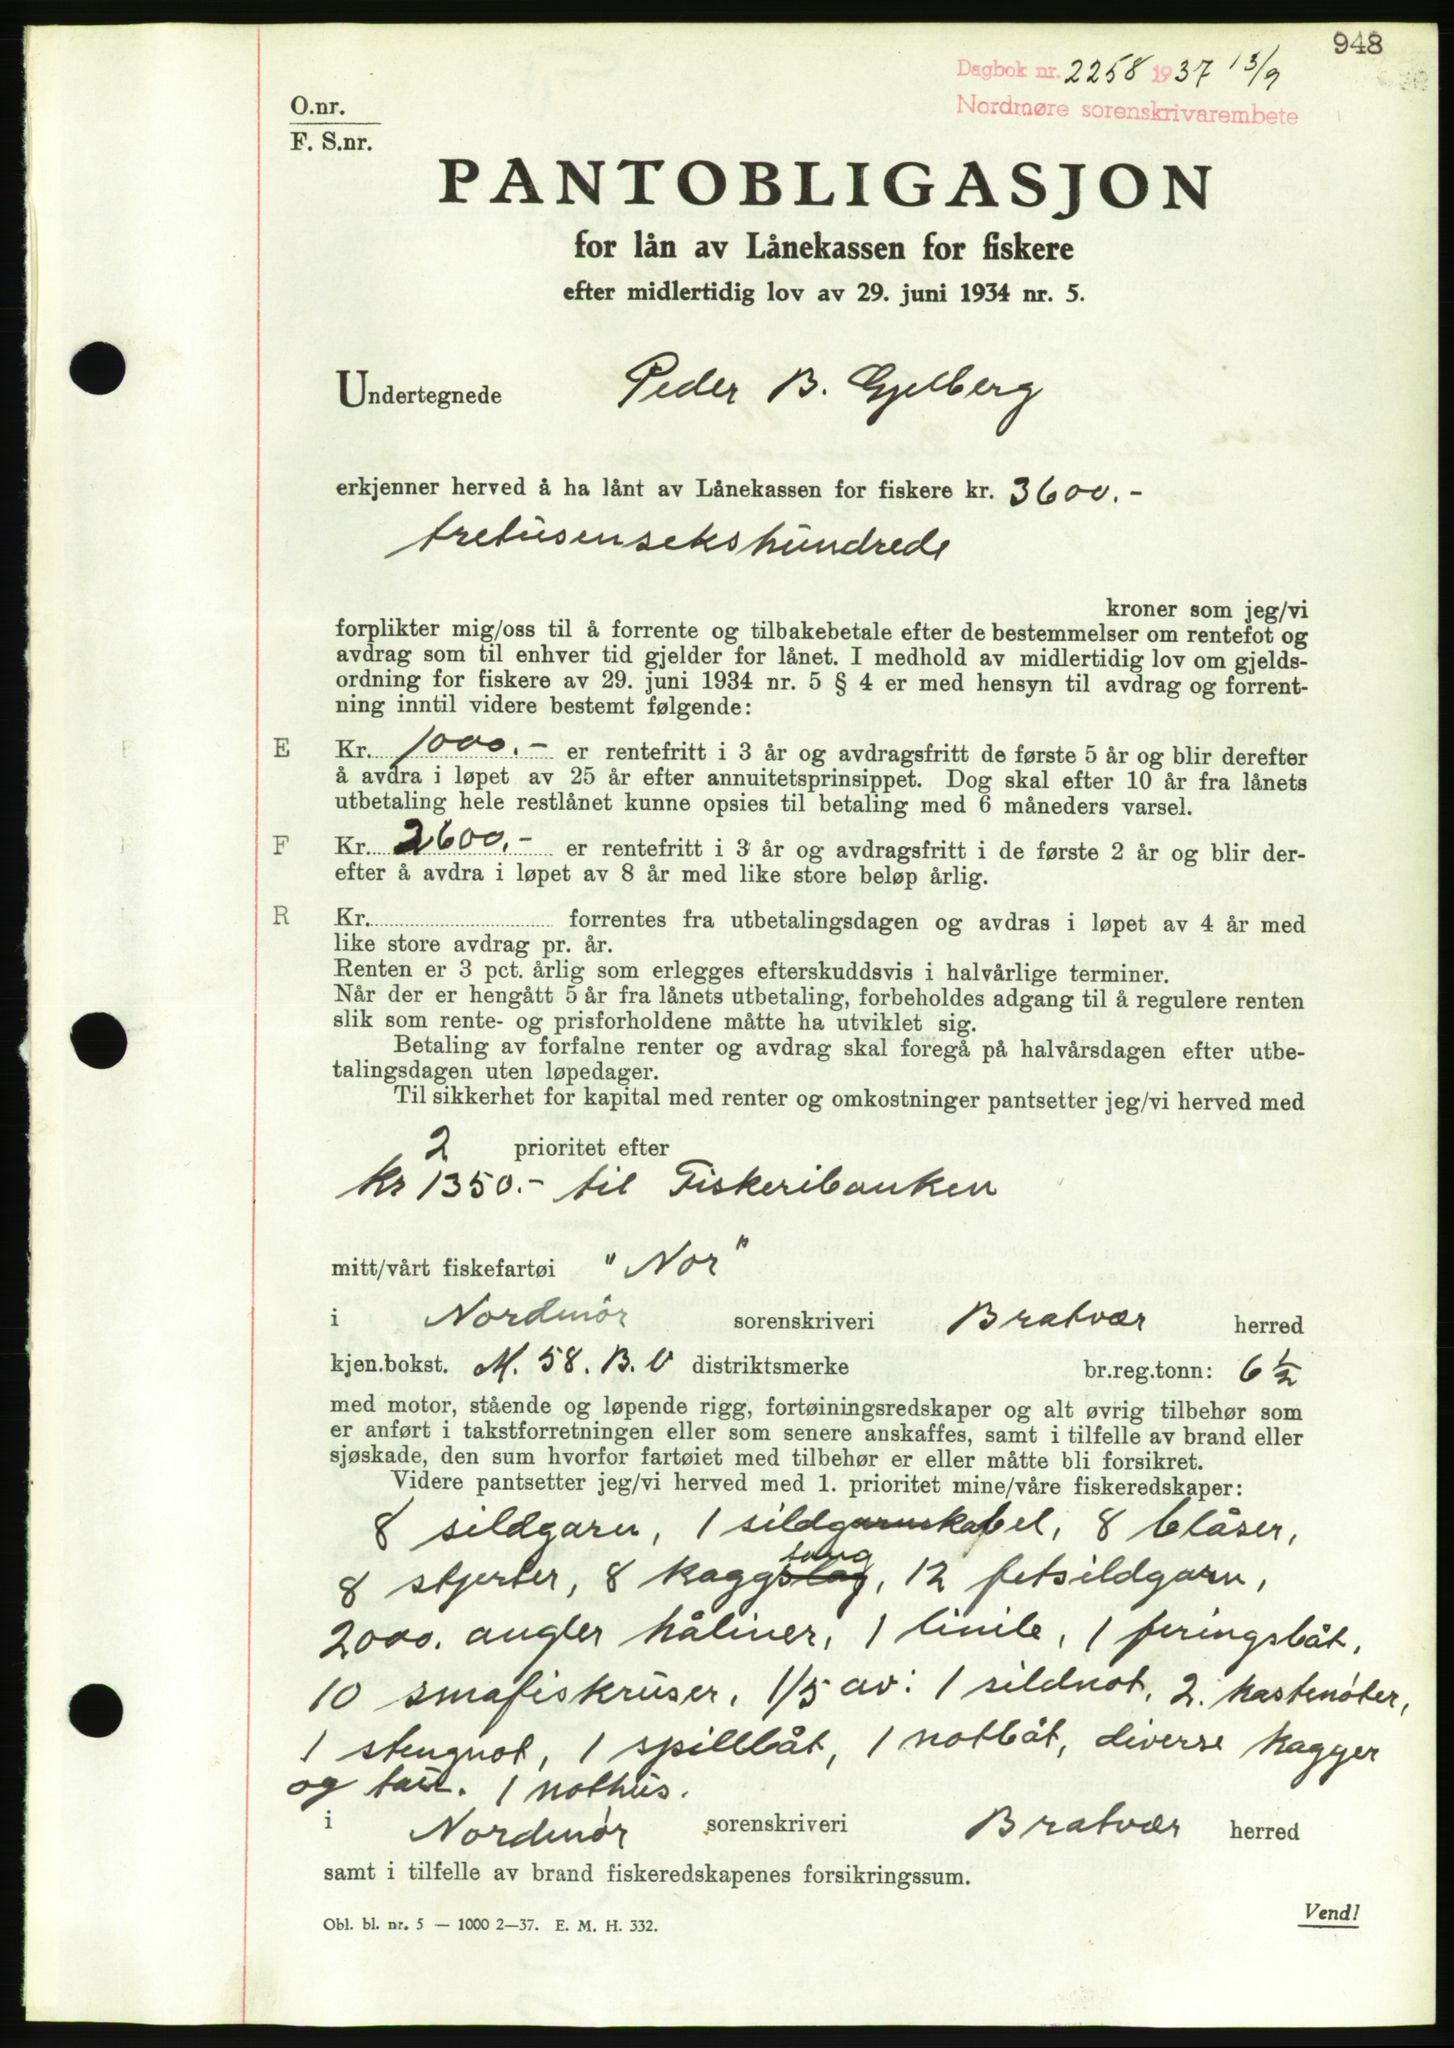 948
Dagbok nr. 2258 1937 13/9
Nordmøre sorenskrivarembete
O.nr.
F. S.nr.
PANTOBLIGASJON
for lån av Lånekassen for fiskere
efter midlertidig lov av 29. juni 1934 nr. 5.
Undertegnede Peder B. Gjelberg
erkjenner herved å ha lånt av Lånekassen for fiskere kr. 3600.-
tretusensekshundrede
kroner som jeg/vi
forplikter mig/oss til å forrente og tilbakebetale efter de bestemmelser om rentefot og
avdrag som til enhver tid gjelder for lånet. I medhold av midlertidig lov om gjelds-
ordning for fiskere av 29. juni 1934 nr. 5 § 4 er med hensyn til avdrag og forrent-
ning inntil videre bestemt følgende:
E Kr. 1000.- er rentefritt i 3 år og avdragsfritt de første 5 år og blir derefter
å avdra i løpet av 25 år efter annuitetsprinsippet. Dog skal efter 10 år fra lånets
utbetaling hele restlånet kunne opsies til betaling med 6 måneders varsel.
F Kr. 2600.- er rentefritt i 3 år og avdragsfritt i de første 2 år og blir der-
efter å avdra i løpet av 8 år med like store beløp årlig.
R Kr. forrentes fra utbetalingsdagen og avdras i løpet av 4 år med
like store avdrag pr. år.
Renten er 3 pct. årlig som erlegges efterskuddsvis i halvårlige terminer.
Når der er hengått 5 år fra lånets utbetaling, forbeholdes adgang til å regulere renten
slik som rente- og prisforholdene måtte ha utviklet sig.
Betaling av forfalne renter og avdrag skal foregå på halvårsdagen efter utbe-
talingsdagen uten løpedager.
Til sikkerhet for kapital med renter og omkostninger pantsetter jeg/vi herved med
2 prioritet efter
kr 1350.- til Fiskeribanken
mitt/vårt fiskefartøi "Nor"
i Nordmör sorenskriveri Bratvær herred
kjen.bokst. M. 58. B.V distriktsmerke br.reg.tonn: 6 1/2
med motor, stående og løpende rigg, fortøiningsredskaper og alt øvrig tilbehør som
er anført i takstforretningen eller som senere anskaffes, samt i tilfelle av brand eller
sjøskade, den sum hvorfor fartøiet med tilbehør er eller måtte bli forsikret.
Videre pantsetter jeg/vi herved med 1. prioritet mine/våre fiskeredskaper:
8 sildgarn, 1 sildgarnskabel, 8 blåser,
8 stjerter, 8 kaggs, 12 fetsildgarn,
2000. angler håliner, 1 linile, 1 feringsbåt,
10 smafiskruser, 1/5 av: 1 sildnot, 2. kastenöter,
1 stengnot, 1 spillbåt, 1 notbåt, diverse kagger
og tau. 1 nothus.
i Nordmör sorenskriveri Bratvær herred
samt i tilfelle av brand fiskeredskapenes forsikringssum.
Obl. bl. nr. 5 — 1000 2—37. E. M. H. 332.
Vend!